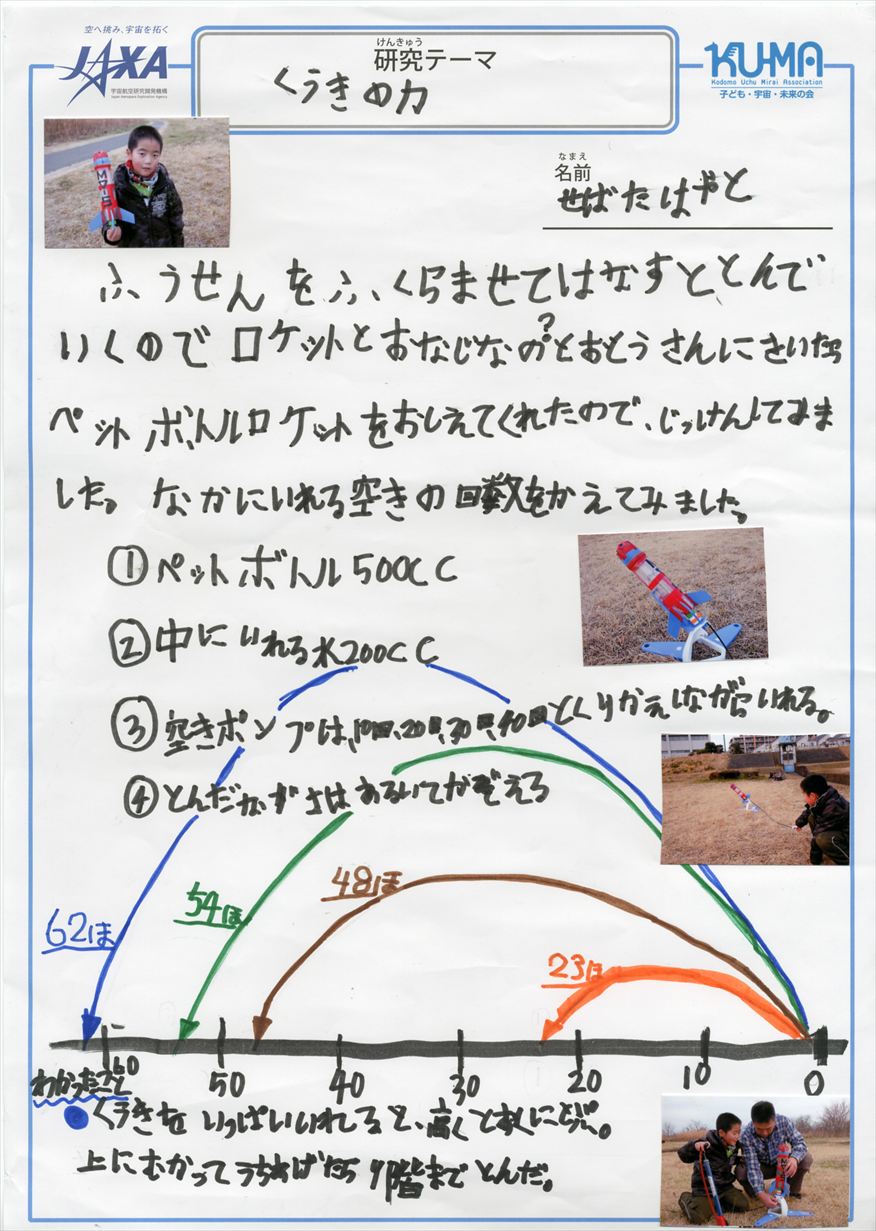 空へ挑み、宇宙を拓く
JAXA
宇宙航空研究開発機構
Japan Aerospace Exploration Agency
けんきゅう
研究テーマ
くうきの力
KU-MA
Kodomo Uchu Mirai Association
子ども・宇宙・未来の会
なまえ
名前
せばたはやと
ふうせんをふくらませてはなすととんで
いくのでロケットとおなじなの?とおとうさんにきいたら
ペットボトルロケットをおしえてくれたので、じっけんしてみま
した。なかにいれる空きの回数をかえてみました。
①ペットボトル500CC
②中にいれる水200CC
③空きポンプは、10回、20回、30回、40回とくりかえしながらいれる。
④とんだながさはあるいてかぞえる
62ほ
54ほ
48ほ
23ほ
60 50 40 30 20 10 0
わかったこと
くうきをいっぱいいれると、高くとおくにとぶ。
上にむかってうちあげたら9階までとんだ。